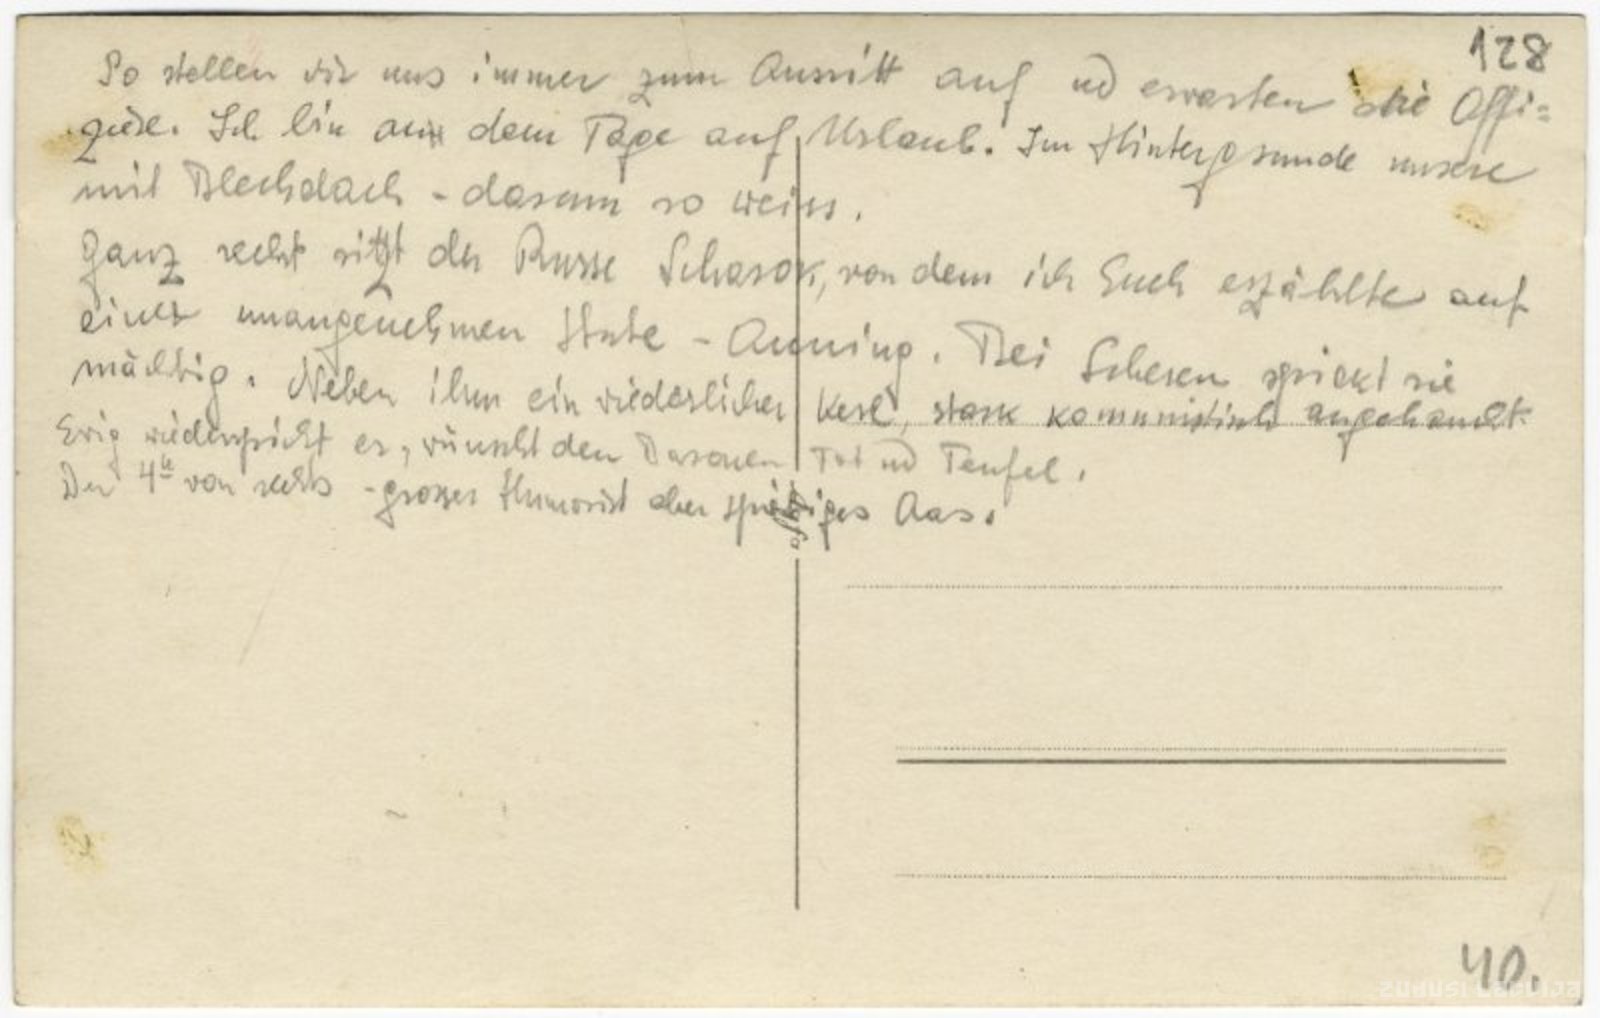 128
So stellen wir uns immer zum Ausritt auf und erwarten die Offi=
ziere. Ich bin an dem Tage auf Urlaub. Im Hintergrunde unsere
mit Blechdach - darum so weiss.
Ganz recht sitzt der Russe Scharok, von dem ich Euch erzählte auf
einer unangenehmen Stute - Anning. Bei Scheren spickt sie
mächtig. Neben ihm ein niederlicher Kerl, stark komunistisch angehaucht.
Ewig wiederspricht er, wünscht den Baronen Tot und Teufel.
Der 4te von rechts - grosser Humorist aber spitziges Aas.
40.
ZUDUSI LATVIJA